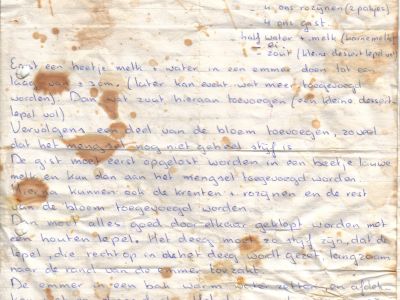 - 4 ons rozijnen (2 pakjes)
- 4 ons gist
- half water + melk (karnemelk)
ei
- zout (kleine dessert lepel vol)
Eerst een beetje melk + water in een emmer doen tot een
laag van ± 3 cm. (later kan event. wat meer toegevoegd
worden). Dan wat zout hieraan toevoegen (een kleine dessert
lepel vol)
Vervolgens een deel van de bloem toevoegen, zoveel
dat het mengsel nog niet geheel stijf is
De gist moet eerst opgelost worden in een beetje lauwe
melk en kan dan aan het mengsel toegevoegd worden.
kunnen ook de krenten + rozijnen en de rest
van de bloem toegevoegd worden.
Dan moet alles goed door elkaar geklopt worden met
een houten lepel. Het deeg moet zo stijf zijn, dat de
lepel, die rechtop in het deeg wordt gezet, langzaam
naar de rand van de emmer toezakt.
De emmer in een bak warm water zetten en afdek